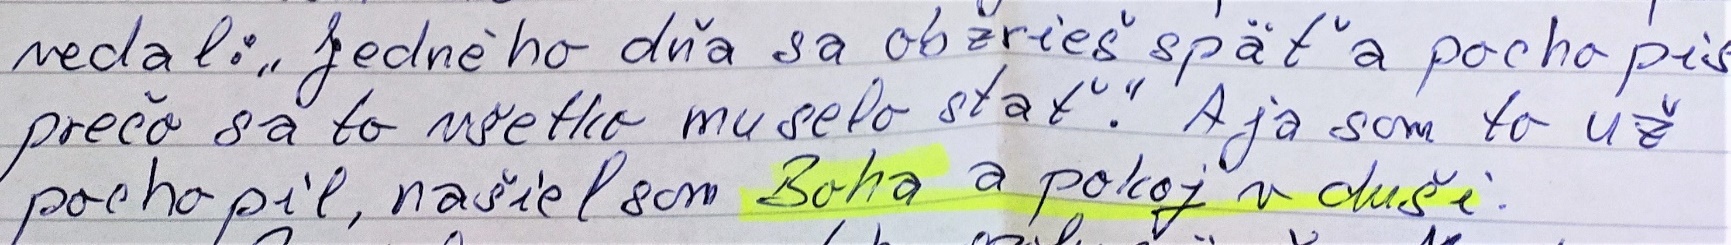 nedal: „Jedného dňa sa obzrieš späť a pochopíš
prečo sa to všetko muselo stať." A ja som to už
pochopil, našiel som Boha a pokoj v duši.